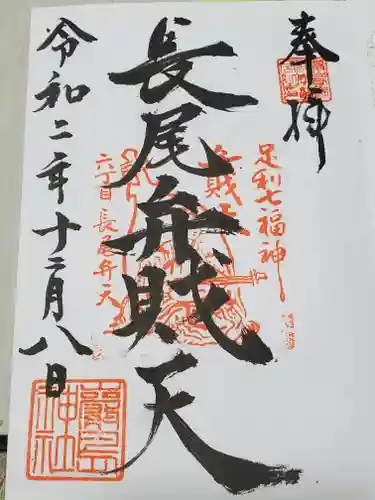 奉拝
足利七福神
長尾弁財天
六丁目 長尾弁天
令和二年十二月八日
嚴島
神社